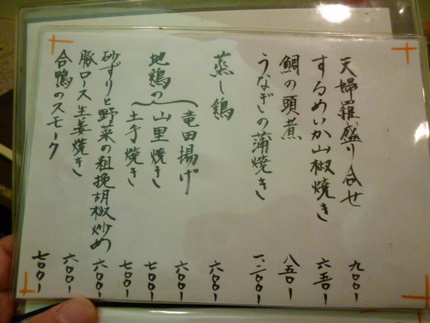 天婦羅盛り合せ 九〇〇-
するめいか山椒焼き 六五〇-
鯛の頭煮 八五〇-
うなぎの蒲焼き 一、二〇〇-
蒸し鶏 六〇〇-
地鶏の
竜田揚げ 六〇〇-
山里焼き 七〇〇-
土手焼き 七〇〇-
砂ずりと野菜の粗挽胡椒炒め 六〇〇-
豚ロース生姜焼き 六〇〇-
合鴨のスモーク 七〇〇-